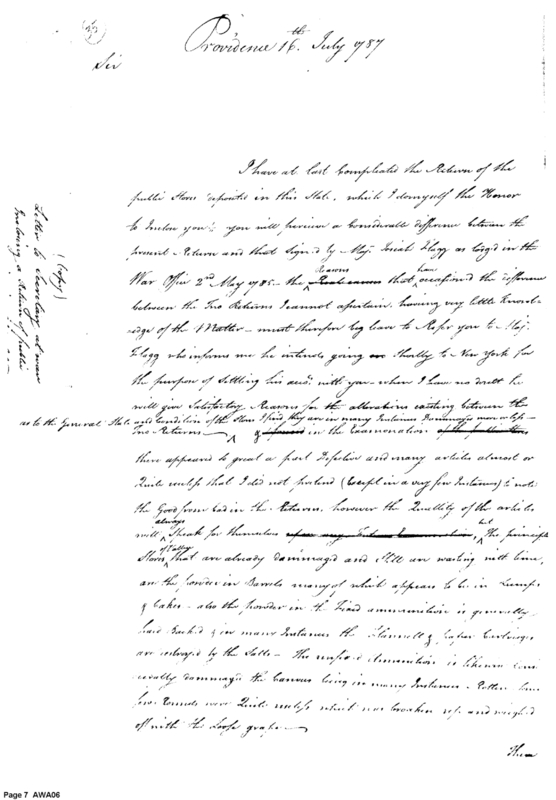 Providence 16th. July 1787
Sir
I have at last Compleated the Return of the
public Stores deposited in this State, which I do myself the Honor
to Inclose you; you will perceive a Considerable difference between the
present Return and that Signed by Maj. Josiah Flagg as lodg'd in the
War Office 2nd May 1785 — the Reasons that have occasioned the difference
between the Two Returns I cannot ascertain, having very little Knowl-
edge of the Matter — must therefore beg leave to Refer you to Maj.
Flagg who informs me he intends going Shortly to New York for
the purpose of Settling his acco. with you when I have no doubt he
will give Satisfactory Reasons for the alterations existing between the
as to the General State and Condition of the Stores I find they are in many Instances Dammaged
Two Returns — & in the Examination
there appeared so great a part Defective and many articles almost or
Quite useless that I did not pretend (Except in a very few Instances) to note
the Good from bad in the Returns, however the Quallity of the articles
will always Speak for themselves but, The principle
Stores that are already dammaged and Still are wasting with time,
are the powder in Barrels many of which appears to be in Lumps
& Cakes — also the powder in the Fixed ammunition is generally
hard Cack'd & in many Instances the Flannell & paper Cartridges
are destroyed by the Salts — The unfixed Amunition is likewise
dammaged the Canvas being in many Instances Rotten Some
few Rounds were Quite useless which was broaken up and weighed
off with the Loose grape —
These
(Copy)
Letter to Secretary at war
Inclosing a Return of public
Page 7 AWA06